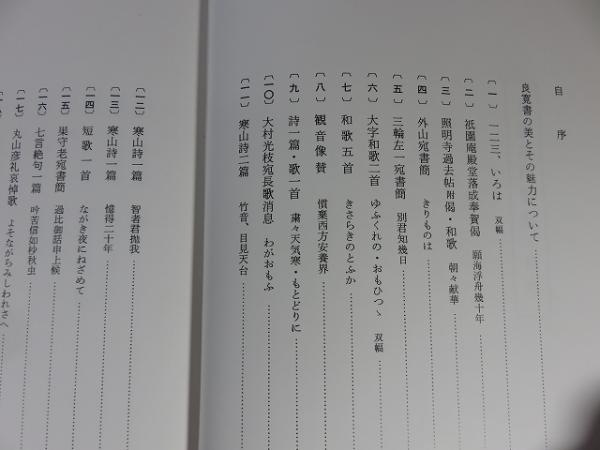 自序
良寛書の美とその魅力について
〔一〕一二三、いろは 双幅
〔二〕祇園庵殿堂落成奉賀偈 願海浮舟幾十年
〔三〕照明寺過去帖附偈・和歌 朝々献華
〔四〕外山宛書簡 きりものは
〔五〕三輪左一宛書簡 別君知幾日
〔六〕大字和歌二首 ゆふくれの・おもひつゝ 双幅
〔七〕和歌五首 きさらきのとふか
〔八〕観音像賛 慣棄西方安養界
〔九〕詩一篇・歌一首 粛々天気寒・もとどりに
〔一〇〕大村光枝宛長歌消息 わがおもふ
〔一一〕寒山詩二篇 竹音、目見天台
〔一二〕寒山詩一篇 智者君抛我
〔一三〕寒山詩一篇 憶得二十年
〔一四〕短歌一首 ながき夜にねざめて
〔一五〕巣守老宛書簡 過比御話申上候
〔一六〕七言絶句一篇 吟苦信如杪秋虫
〔一七〕丸山彦礼哀悼歌 よそながらちみしわれさへ